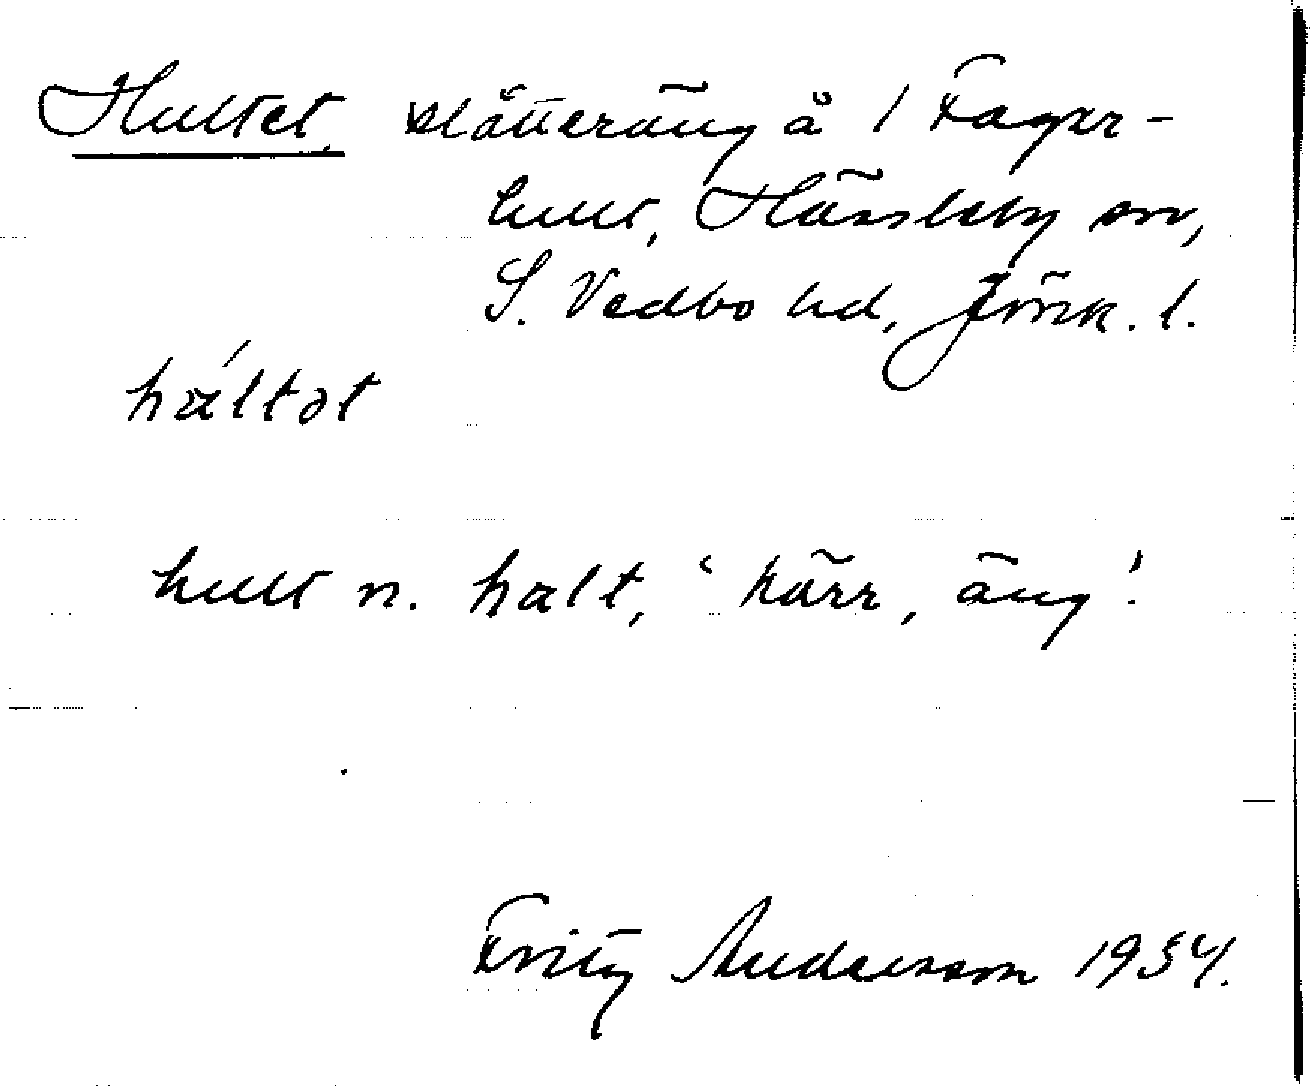 Hultet, slåtteräng å 1 Fager-
hult, Hässleby sn,
S. Vedbo hd, Jönk. l.
háltat
hult n. halt, ‘kärr, äng’.
Fritz Andersson 1934.